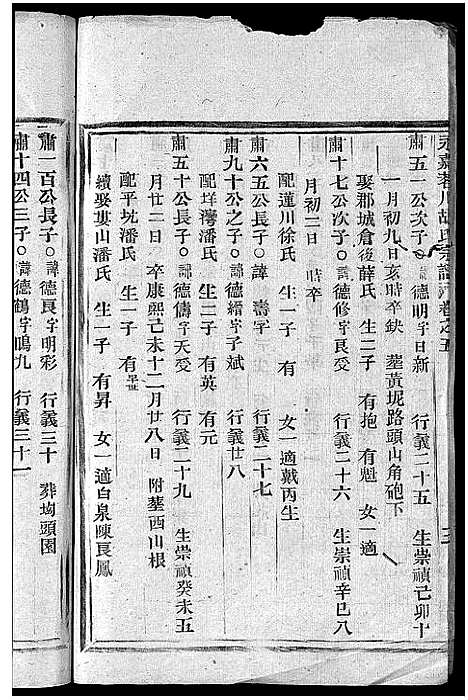 永嘉蓉川胡氏宗譜 卷之五
肅五一公次子 諱德明字日新 行義二十五 生崇禎己卯十
一月初九日亥時卒缺 塟黃坭路頭山角砲下
娶郡城倉後薛氏 生二子 有抱 有魁 女一適
肅十七公次子 諱德修字艮受 行義二十六 生崇禎辛巳八
月初二日 時卒
配蓮川徐氏 生一子 有 女一適戴丙生
肅六五公長子 諱 壽字 行義二十七
肅九十公之子 諱德縉字子斌 行義廿八
配垟灣潘氏 生二子 有英 有元
肅五十公長子 諱德儔字天受 行義二十九 生崇禎癸未五
月廿二日 卒康熙己未十二月廿八日 附塟西山根
配平坑潘氏 生一子 有
續娶婁山潘氏 生一子 有昇 女一適白泉陳艮鳳
肅一百公長子 諱德艮字明彩 行義三十 葬坳頭園
肅十四公三子 諱德鶴字鳴九 行義三十一